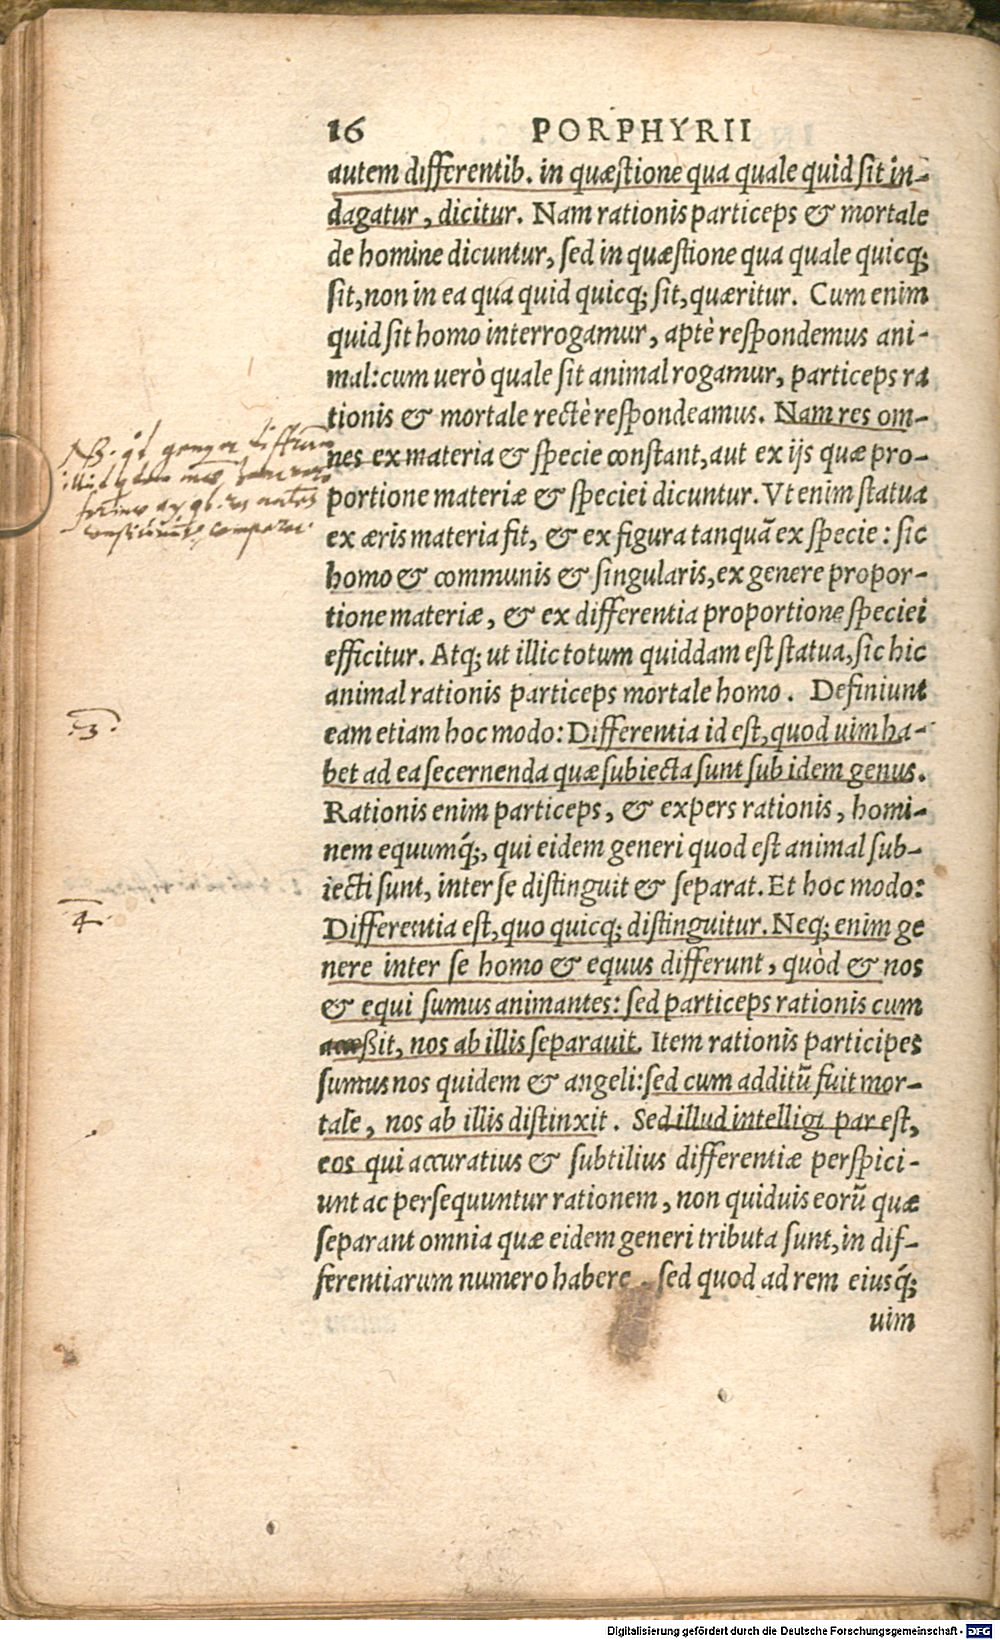 16 PORPHYRII
autem differentib. in quæstione qua quale quid sit in-
dagatur, dicitur. Nam rationis particeps & mortale
de homine dicuntur, sed in quæstione qua quale quicq;
sit, non in ea qua quid quicq; sit, quæritur. Cum enim
quid sit homo interrogamur, aptè respondemus ani-
mal: cum uerò quale sit animal rogamur, particeps ra
tionis & mortale rectè respondeamus. Nam res om-
nes ex materia & specie constant, aut ex ijs quæ pro-
portione materiæ & speciei dicuntur. Vt enim statua
ex æris materia fit, & ex figura tanquã ex specie: sic
homo & communis & singularis, ex genere propor-
tione materiæ, & ex differentia proportione speciei
efficitur. Atq; ut illic totum quiddam est statua, sic hic
animal rationis particeps mortale homo. Definiunt
eam etiam hoc modo: Differentia id est, quod uim ha-
bet ad ea secernenda quæ subiecta sunt sub idem genus.
Rationis enim particeps, & expers rationis, homi-
nem equumq́;, qui eidem generi quod est animal sub-
iecti sunt, inter se distinguit & separat. Et hoc modo:
Differentia est, quo quicq; distinguitur. Neq; enim ge
nere inter se homo & equus differunt, quòd & nos
& equi sumus animantes: sed particeps rationis cum
accessit, nos ab illis separauit. Item rationis participes
sumus nos quidem & angeli: sed cum additũ fuit mor-
tale, nos ab illis distinxit. Sed illud intelligi par est,
eos qui accuratius & subtilius differentiæ perspici-
unt ac persequuntur rationem, non quiduis eorũ quæ
separant omnia quæ eidem generi tributa sunt, in dif-
ferentiarum numero habere, sed quod ad rem eiusq́;
uim
NB.
.3.
4.
Digitalisierung gefördert durch die Deutsche Forschungsgemeinschaft - DFG